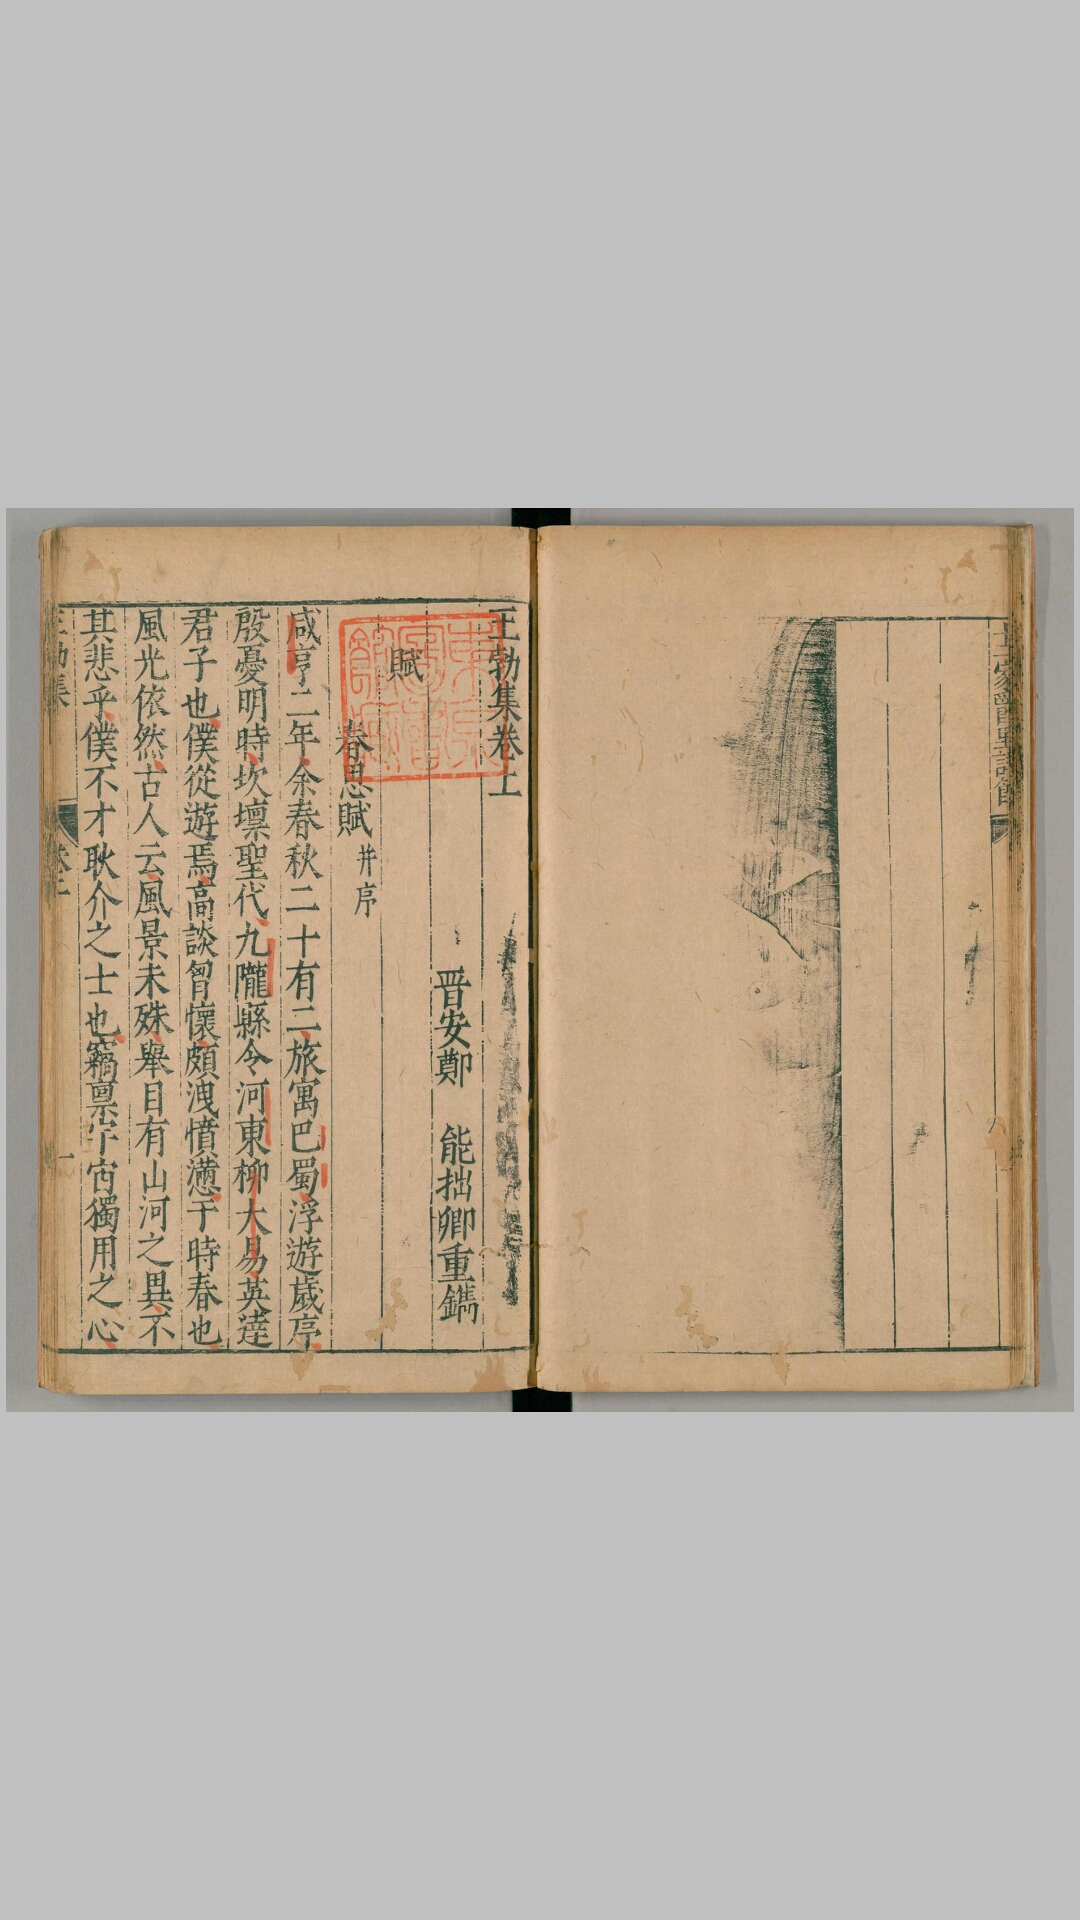 王勃集卷上
晋安鄭　能拙卿重鐫
賦
春思賦 并序
咸亨二年余春秋二十有二旅寓巴蜀浮遊歲序
殷憂明時坎壈聖代九隴縣令河東柳太易英達
君子也僕從遊焉高談胷懷頗洩憤懣于時春也
風光依然古人云風景未殊舉目有山河之異不
其悲乎僕不才耿介之士也竊禀宇宙獨用之心
王勃集
卷上
一